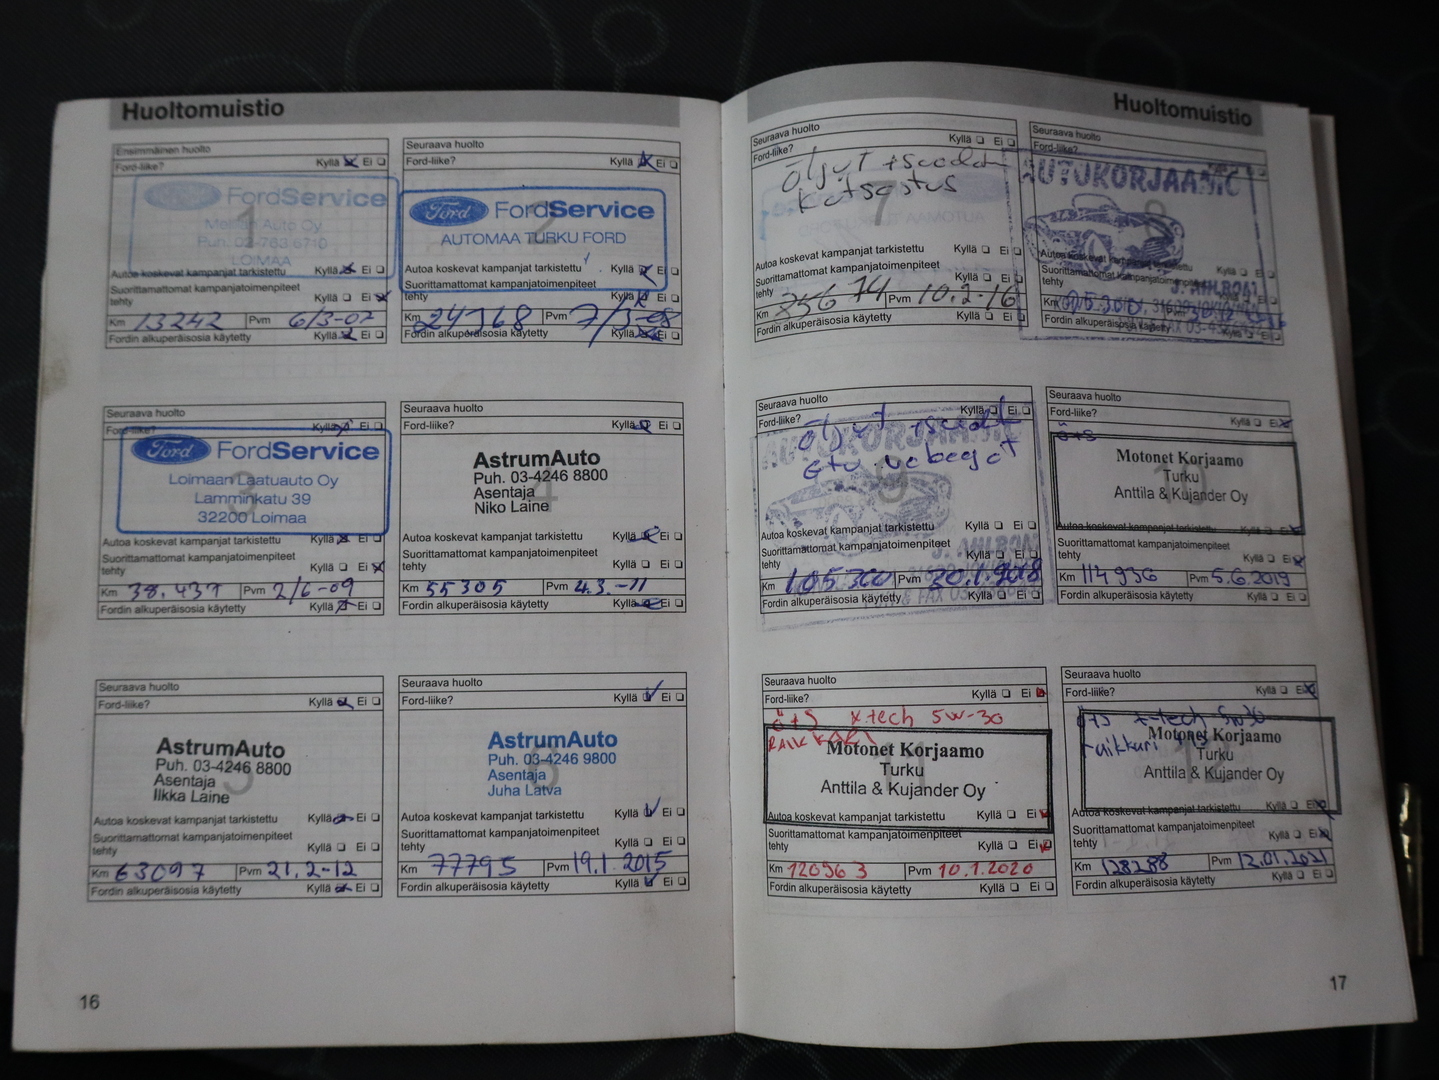 Huoltomuistio
Ensimmäinen huolto
Ford-liike? Kyllä Ei
FordService
Auto Oy
Puh. 02-763 6710
LOIMAA
Autoa koskevat kampanjat tarkistettu Kyllä Ei
Suorittamattomat kampanjatoimenpiteet
tehty Kyllä Ei
Km 13242 Pvm 6/3-07
Fordin alkuperäisosia käytetty Kyllä Ei
Seuraava huolto
Ford-liike? Kyllä Ei
Ford FordService
2
AUTOMAA TURKU FORD
Autoa koskevat kampanjat tarkistettu Kyllä Ei
Suorittamattomat kampanjatoimenpiteet
tehty Kyllä Ei
Km 24768 Pvm 7/3-08
Fordin alkuperäisosia käytetty Kyllä Ei
Seuraava huolto
Ford-liike? Kyllä Ei
Ford FordService
3
Loimaan Laatuauto Oy
Lamminkatu 39
32200 Loimaa
Autoa koskevat kampanjat tarkistettu Kyllä Ei
Suorittamattomat kampanjatoimenpiteet
tehty Kyllä Ei
Km 38.437 Pvm 2/6-09
Fordin alkuperäisosia käytetty Kyllä Ei
Seuraava huolto
Ford-liike? Kyllä Ei
AstrumAuto
Puh. 03-4246 8800
4
Asentaja
Niko Laine
Autoa koskevat kampanjat tarkistettu Kyllä Ei
Suorittamattomat kampanjatoimenpiteet
tehty Kyllä Ei
Km 55305 Pvm 4.3.-11
Fordin alkuperäisosia käytetty Kyllä Ei
Seuraava huolto
Ford-liike? Kyllä Ei
AstrumAuto
Puh. 03-4246 8800
5
Asentaja
Ilkka Laine
Autoa koskevat kampanjat tarkistettu Kyllä Ei
Suorittamattomat kampanjatoimenpiteet
tehty Kyllä Ei
Km 63097 Pvm 21.2-12
Fordin alkuperäisosia käytetty Kyllä Ei
Seuraava huolto
Ford-liike? Kyllä Ei
AstrumAuto
Puh. 03-4246 9800
6
Asentaja
Juha Latva
Autoa koskevat kampanjat tarkistettu Kyllä Ei
Suorittamattomat kampanjatoimenpiteet
tehty Kyllä Ei
Km 77795 Pvm 19.1.2015
Fordin alkuperäisosia käytetty Kyllä Ei
16
Huoltomuistio
Seuraava huolto
Ford-liike? Kyllä Ei
Öljyt +suodatin
Katsastus
7
Autoa koskevat kampanjat tarkistettu Kyllä Ei
Suorittamattomat kampanjatoimenpiteet
tehty Kyllä Ei
Km Pvm 10.2.16
Fordin alkuperäisosia käytetty Kyllä Ei
Seuraava huolto
Ford-liike?
AUTOKORJAAMO
8
Autoa koskevat kampanjat tarkistettu
Suorittamattomat kampanjatoimenpiteet
tehty
J. AHLROOS
Km
Fordin alkuperäisosia käytetty Kyllä Ei
Seuraava huolto
Ford-liike? Kyllä Ei
Öljyt +suodat
AUTOKORJAAMO
9
Autoa koskevat kampanjat tarkistettu Kyllä Ei
Suorittamattomat kampanjatoimenpiteet
tehty Kyllä Ei
J. AHLROOS
Km 105300 Pvm 30.1.2018
Fordin alkuperäisosia käytetty Kyllä Ei
Seuraava huolto
Ford-liike? Kyllä Ei
ö+s
Motonet Korjaamo
10
Turku
Anttila & Kujander Oy
Autoa koskevat kampanjat tarkistettu Kyllä Ei
Suorittamattomat kampanjatoimenpiteet
tehty Kyllä Ei
Km 114936 Pvm 5.6.2019
Fordin alkuperäisosia käytetty Kyllä Ei
Seuraava huolto
Ford-liike? Kyllä Ei
ö+s x tech 5w-30
Motonet Korjaamo
11
Turku
Anttila & Kujander Oy
Autoa koskevat kampanjat tarkistettu Kyllä Ei
Suorittamattomat kampanjatoimenpiteet
tehty Kyllä Ei
Km 120963 Pvm 10.1.2020
Fordin alkuperäisosia käytetty Kyllä Ei
Seuraava huolto
Ford-liike? Kyllä Ei
ö+s x-tech 5w30
Motonet Korjaamo
12
Turku
Anttila & Kujander Oy
Autoa koskevat kampanjat tarkistettu Kyllä Ei
Suorittamattomat kampanjatoimenpiteet
tehty Kyllä Ei
Km 128288 Pvm 12.01.2021
Fordin alkuperäisosia käytetty Kyllä Ei
17